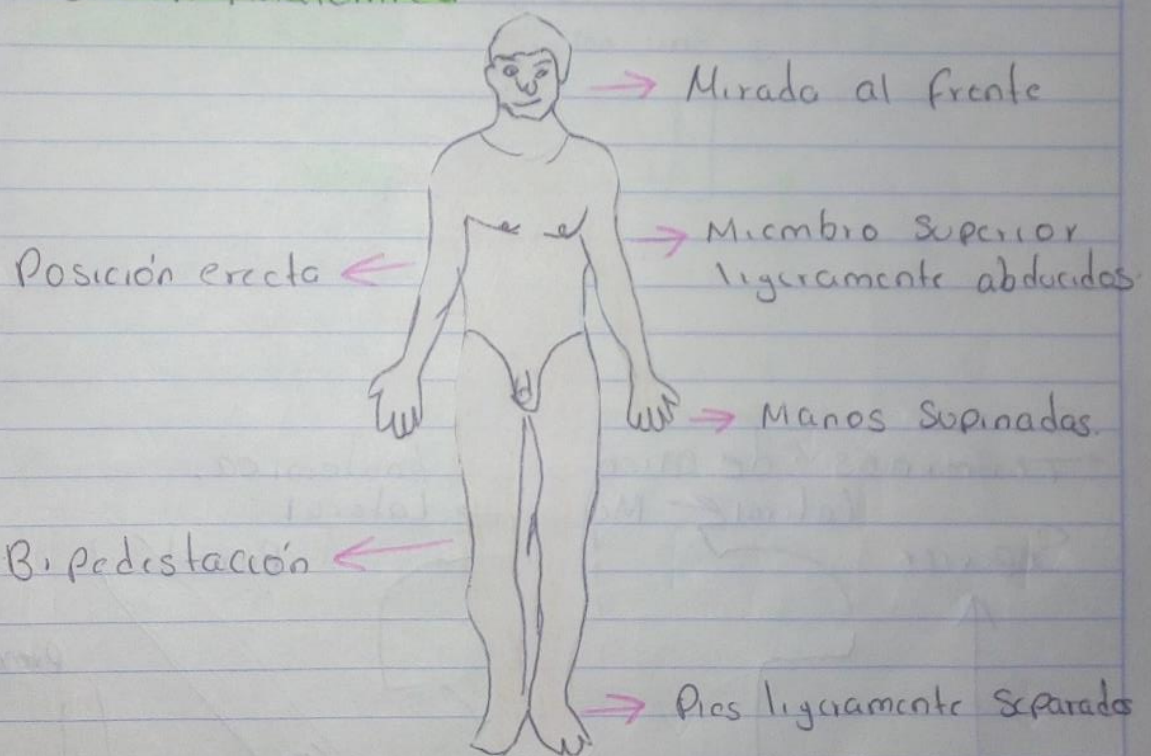 Mirada al frente
Miembro Superior
ligeramente abducidos
Posición erecta
Manos Supinadas.
Bipedestación
Pies ligeramente Separados